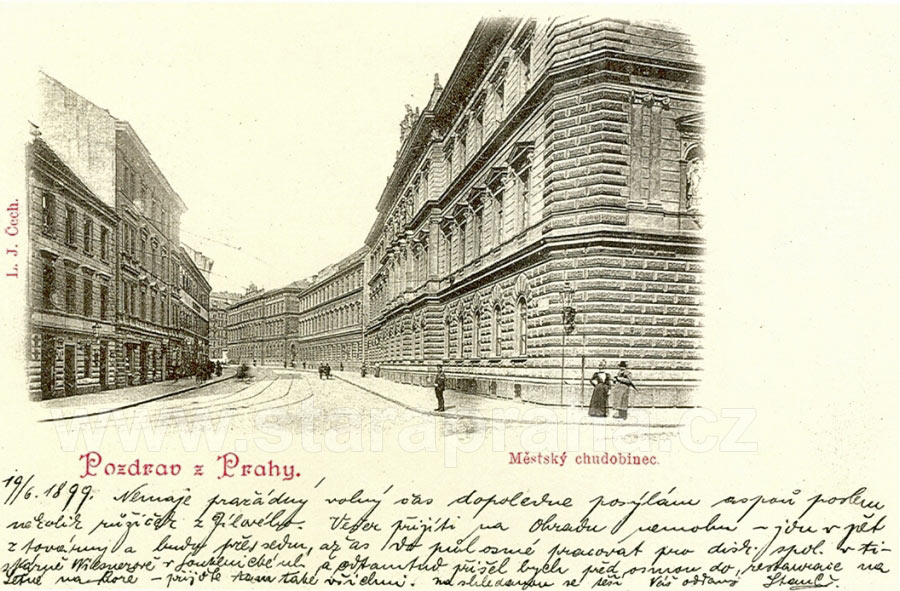 L. J. Čech.
www.stara praha.cz
Pozdrav z Prahy.
Městský chudobinec.
19/6. 1899. Nemaje pražádný volný čas dopoledne posýlám aspoň poslem
několik růžiček z Jílového. Večer přijíti na Ohradu nemohu – jdu v pět
z továrny a budu před sedm, až as do půl osmé pracovat pro disk. spol. v ti-
skárně Wiesnerově v ul. a odtamtud přišel bych před osmou do restaurace na
Letné na hoře – přijďte také všichni. na shledanou se těší Váš oddaný